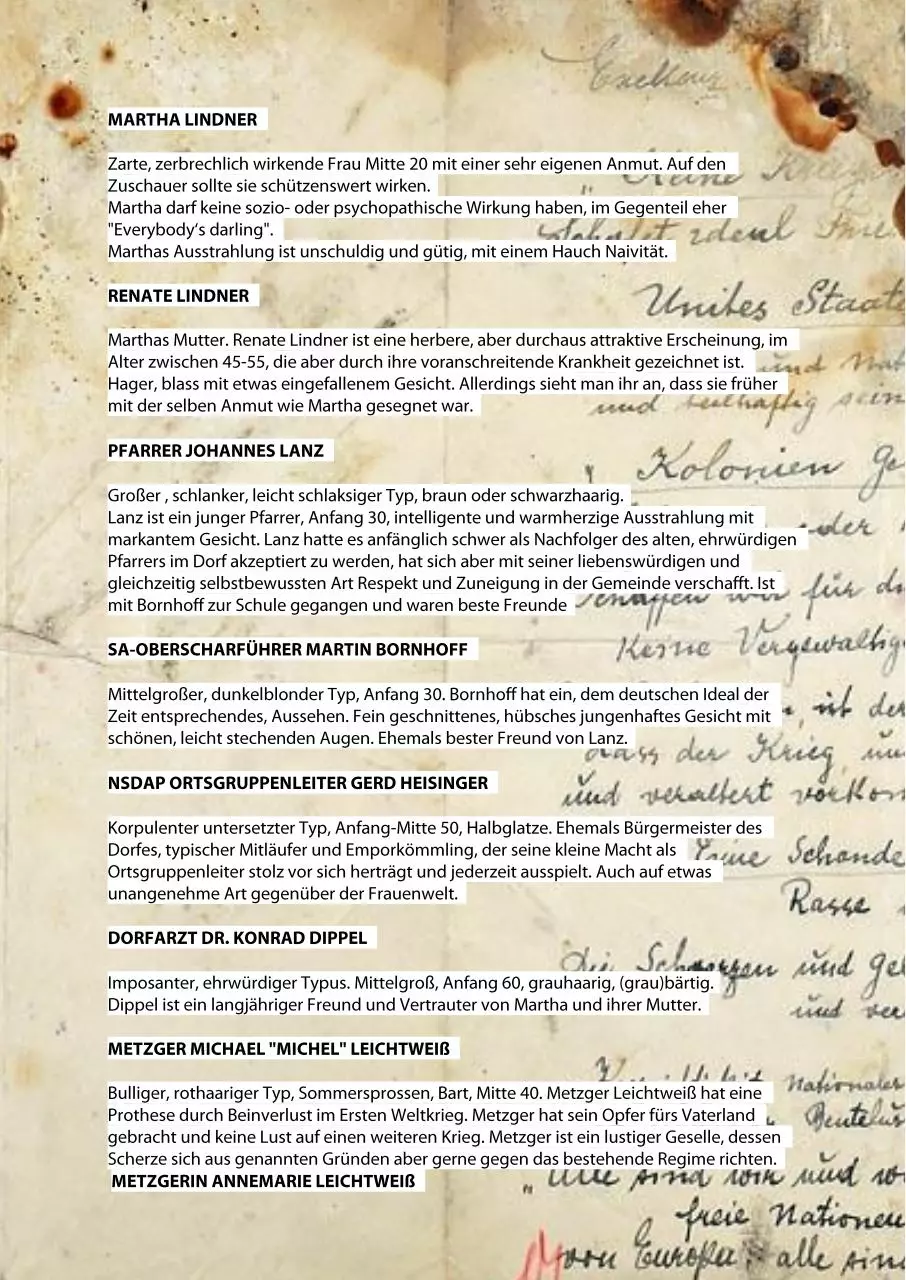 Exellenz
MARTHA LINDNER
Zarte, zerbrechlich wirkende Frau Mitte 20 mit einer sehr eigenen Anmut. Auf den
Zuschauer sollte sie schützenswert wirken.
Martha darf keine sozio- oder psychopathische Wirkung haben, im Gegenteil eher
"Everybody‘s darling".
Marthas Ausstrahlung ist unschuldig und gütig, mit einem Hauch Naivität.
Unites Staat
RENATE LINDNER
Marthas Mutter. Renate Lindner ist eine herbere, aber durchaus attraktive Erscheinung, im
Alter zwischen 45-55, die aber durch ihre voranschreitende Krankheit gezeichnet ist.
und
Hager, blass mit etwas eingefallenem Gesicht. Allerdings sieht man ihr an, dass sie früher
mit der selben Anmut wie Martha gesegnet war.
und teilhaftig sein
PFARRER JOHANNES LANZ
Kolonien
Großer , schlanker, leicht schlaksiger Typ, braun oder schwarzhaarig.
Lanz ist ein junger Pfarrer, Anfang 30, intelligente und warmherzige Ausstrahlung mit
markantem Gesicht. Lanz hatte es anfänglich schwer als Nachfolger des alten, ehrwürdigen
Pfarrers im Dorf akzeptiert zu werden, hat sich aber mit seiner liebenswürdigen und
gleichzeitig selbstbewussten Art Respekt und Zuneigung in der Gemeinde verschafft. Ist
mit Bornhoff zur Schule gegangen und waren beste Freunde
schaffen wir für
SA-OBERSCHARFÜHRER MARTIN BORNHOFF
Keine Vergewaltig
Mittelgroßer, dunkelblonder Typ, Anfang 30. Bornhoff hat ein, dem deutschen Ideal der
Zeit entsprechendes, Aussehen. Fein geschnittenes, hübsches jungenhaftes Gesicht mit
ist der
schönen, leicht stechenden Augen. Ehemals bester Freund von Lanz.
dass der Krieg
NSDAP ORTSGRUPPENLEITER GERD HEISINGER
und veraltert vorkom
Korpulenter untersetzter Typ, Anfang-Mitte 50, Halbglatze. Ehemals Bürgermeister des
Dorfes, typischer Mitläufer und Emporkömmling, der seine kleine Macht als
keine Schande
Ortsgruppenleiter stolz vor sich herträgt und jederzeit ausspielt. Auch auf etwas
unangenehme Art gegenüber der Frauenwelt.
Rasse
DORFARZT DR. KONRAD DIPPEL
Imposanter, ehrwürdiger Typus. Mittelgroß, Anfang 60, grauhaarig, (grau)bärtig.
Die Schwarzen und Gel
Dippel ist ein langjähriger Freund und Vertrauter von Martha und ihrer Mutter.
und
METZGER MICHAEL "MICHEL" LEICHTWEIß
Nationaler
Bulliger, rothaariger Typ, Sommersprossen, Bart, Mitte 40. Metzger Leichtweiß hat eine
Prothese durch Beinverlust im Ersten Weltkrieg. Metzger hat sein Opfer fürs Vaterland
gebracht und keine Lust auf einen weiteren Krieg. Metzger ist ein lustiger Geselle, dessen
Scherze sich aus genannten Gründen aber gerne gegen das bestehende Regime richten.
METZGERIN ANNEMARIE LEICHTWEIß
„Alle sind wir und
freie Nationen
von Europa alle sin